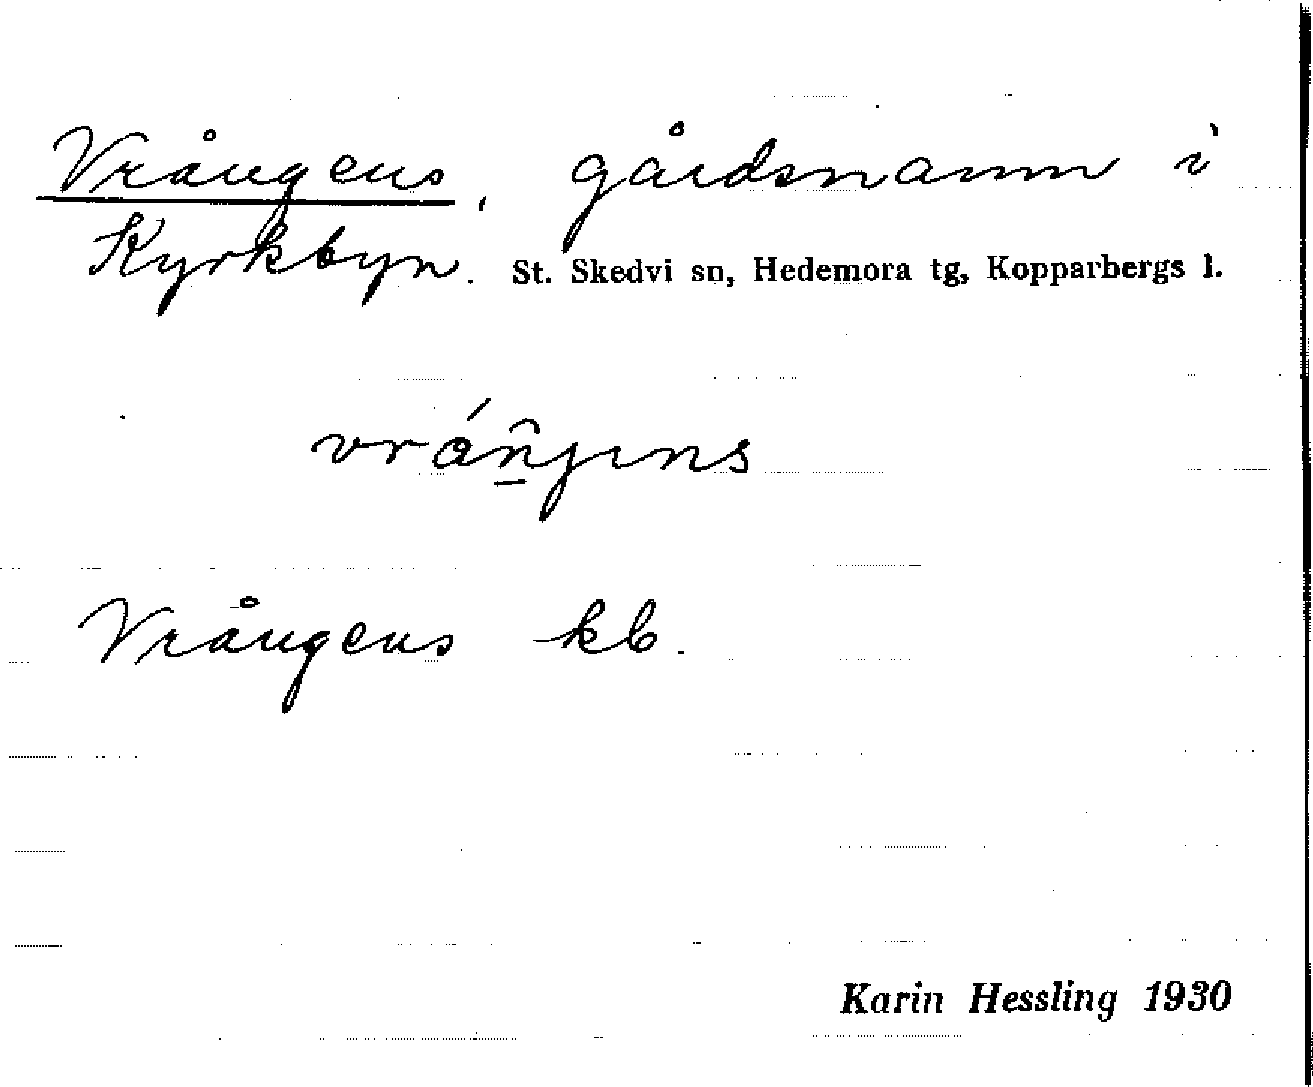 Vrångens, gårdsnamn i
Kyrkbyn. St. Skedvi sn, Hedemora tg, Kopparbergs l.
vrán̂jıns
Vrångens kb.
Karin Hessling 1930